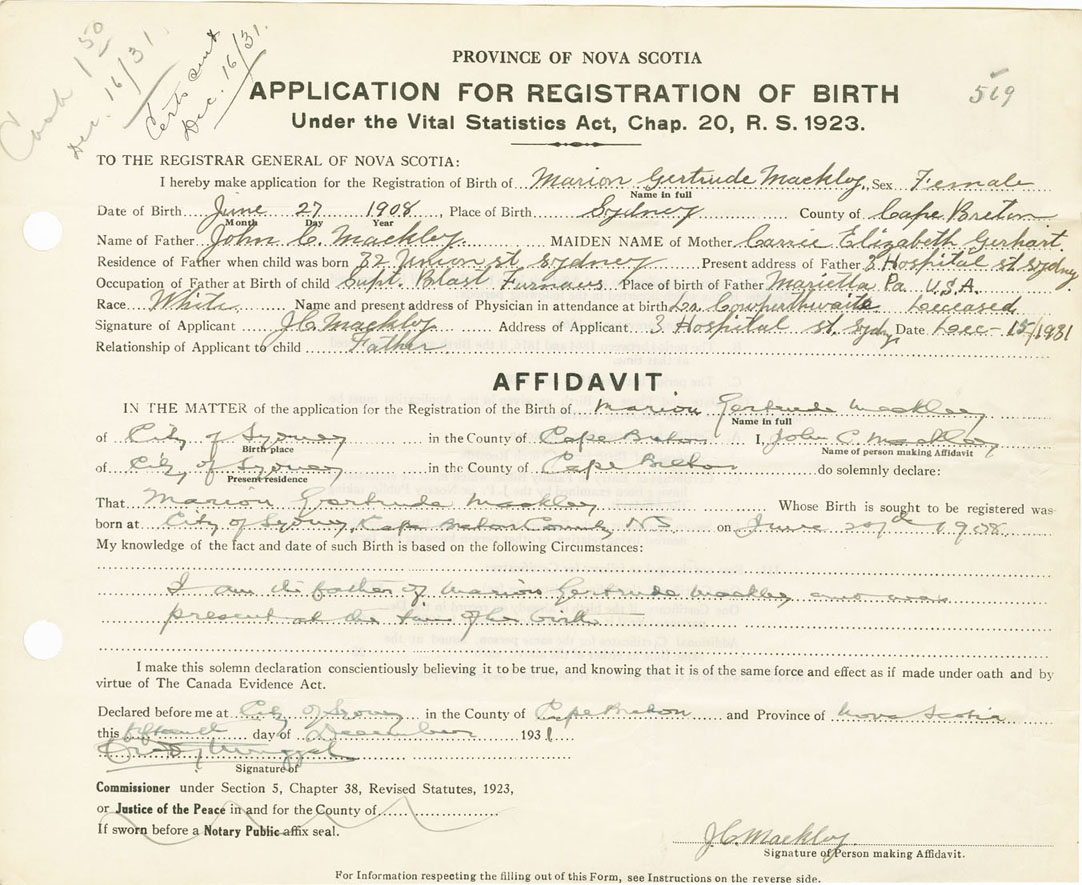 Cash 1.50
Dec. 16/31.
Certs sent
Dec. 16/31.
PROVINCE OF NOVA SCOTIA
APPLICATION FOR REGISTRATION OF BIRTH
519
Under the Vital Statistics Act, Chap. 20, R. S. 1923.
TO THE REGISTRAR GENERAL OF NOVA SCOTIA:
I hereby make application for the Registration of Birth of Marion Gertrude Mackley, Sex Female
Name in full
Date of Birth June 27 1908, Place of Birth Sydney County of Cape Breton
Month Day Year
Name of Father John C. Mackley MAIDEN NAME of Mother Carrie Elizabeth Gerhart.
Residence of Father when child was born 32 Union st Sydney Present address of Father 3 Hospital st Sydney
Occupation of Father at Birth of child Supt. Blast Furnaces Place of birth of Father Marietta Pa U.S.A.
Race White Name and present address of Physician in attendance at birth Dr. Cowperthwaite Deceased
Signature of Applicant J C Mackley Address of Applicant 3 Hospital st Sydney Date Dec - 15/1931
Relationship of Applicant to child Father
AFFIDAVIT
IN THE MATTER of the application for the Registration of the Birth of Marion Gertrude Mackley
Name in full
of City of Sydney in the County of Cape Breton I, John C Mackley
Birth place Name of person making Affidavit
of City of Sydney in the County of Cape Breton do solemnly declare:
Present residence
That Marion Gertrude Mackley Whose Birth is sought to be registered was
born at City of Sydney, Cape Breton County, NS on June 27th 1908
My knowledge of the fact and date of such Birth is based on the following Circumstances:
I am the father of Marion Gertrude Mackley and was
present at the time of her birth
I make this solemn declaration conscientiously believing it to be true, and knowing that it is of the same force and effect as if made under oath and by
virtue of The Canada Evidence Act.
Declared before me at City of Sydney in the County of Cape Breton and Province of Nova Scotia
this fifteenth day of December 1931
Signature of
Commissioner under Section 5, Chapter 38, Revised Statutes, 1923,
or Justice of the Peace in and for the County of
If sworn before a Notary Public affix seal.
J C Mackley
Signature of Person making Affidavit.
For Information respecting the filling out of this Form, see Instructions on the reverse side.